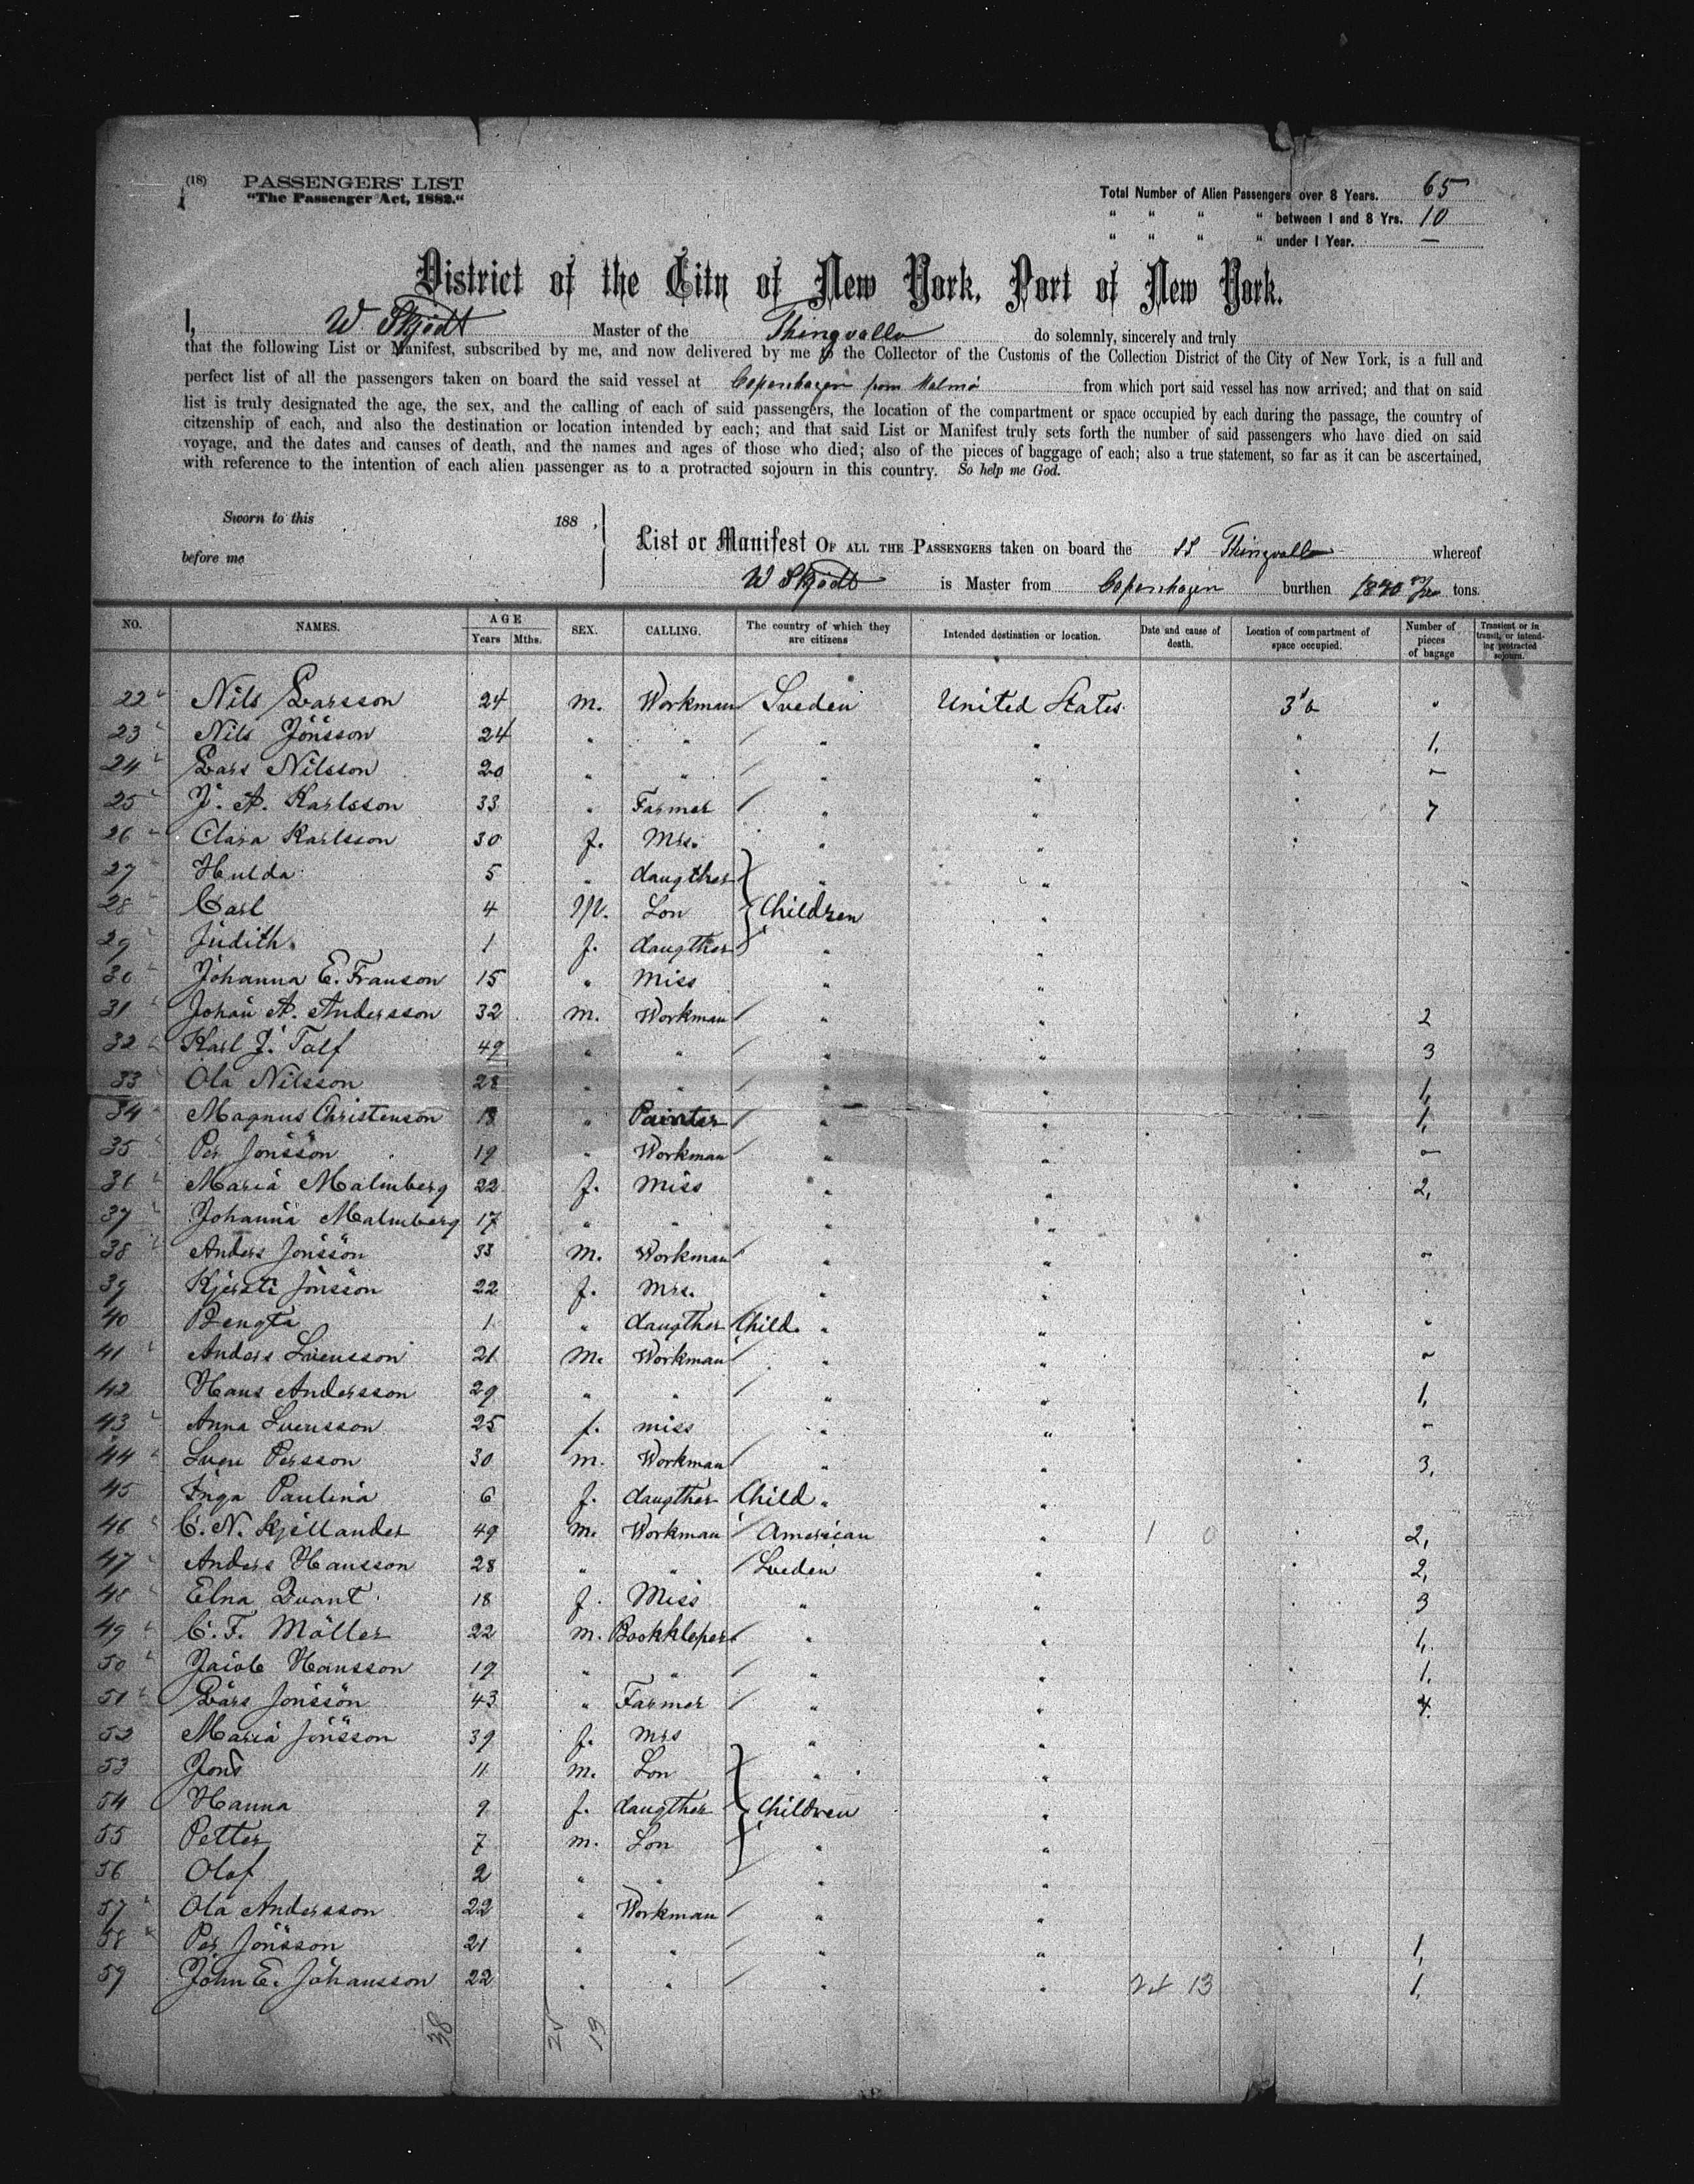 (18) PASSENGERS' LIST
"The Passenger Act, 1882."
Total Number of Alien Passengers over 8 Years. 65
" " " " between 1 and 8 Yrs. 10
" " " " under 1 Year. —
District of the City of New York, Port of New York.
I, W Skjödt Master of the Thingvalla do solemnly, sincerely and truly
that the following List or Manifest, subscribed by me, and now delivered by me to the Collector of the Customs of the Collection District of the City of New York, is a full and
perfect list of all the passengers taken on board the said vessel at Copenhagen from Malmö from which port said vessel has now arrived; and that on said
list is truly designated the age, the sex, and the calling of each of said passengers, the location of the compartment or space occupied by each during the passage, the country of
citzenship of each, and also the destination or location intended by each; and that said List or Manifest truly sets forth the number of said passengers who have died on said
voyage, and the dates and causes of death, and the names and ages of those who died; also of the pieces of baggage of each; also a true statement, so far as it can be ascertained,
with reference to the intention of each alien passenger as to a protracted sojourn in this country. So help me God.
Sworn to this 188 ,
before me
List or Manifest OF ALL THE PASSENGERS taken on board the SS Thingvalla whereof
W Skjödt is Master from Copenhagen burthen tons.
NO. NAMES. AGE Years Mths. SEX. CALLING. The country of which they are citizens Intended destination or location. Date and cause of death. Location of compartment of space occupied. Number of pieces of bagage Transient or in transit, or intending protracted sojourn.
22 Nils Larsson 24 m. Workman Sveden United States "
23 Nils Jönsson 24 " " " " " 1,
24 Lars Nilsson 20 " " " " " -
25 J. A. Karlsson 33 " Farmer " " " 7
26 Clara Karlsson 30 f. Mrs. " " "
27 Hulda 5 " daugther " "
28 Carl 4 M. Son Children "
29 Judith 1 f. daugther " "
30 Johanna E. Franson 15 " Miss " "
31 Johan A. Andersson 32 m. Workman " " " 2
32 Karl J. Talf 49 " " " " " 3
33 Ola Nilsson 28 " " " " " 1,
34 Magnus Christenson 18 " Painter " " " 1,
35 Per Jönsson 19 " Workman " " " -
36 Maria Malmberg 22 f. Miss " " " 2,
37 Johanna Malmberg 17 " " " "
38 Anders Jönsson 33 m. Workman " " " -
39 Kjersti Jönsson 22 f. Mrs. " " "
40 Bengta 1 " daugther Child. " " " "
41 Anders Svensson 21 m. Workman " " " -
42 Hans Andersson 29 " " " " " 1,
43 Anna Svensson 25 f. miss " " " -
44 Sven Persson 30 m. Workman " " " 3,
45 Inga Paulina 6 f. daugther Child " "
46 C. N. Kjellander 49 m. Workman American " 1 0 " 2,
47 Anders Hansson 28 " " Sveden " " 2,
48 Elna Qvant 18 f. Miss " " " 3
49 C. F. Möller 22 m. Bookkleper " " " 1,
50 Jacob Hansson 19 " " " " " 1,
51 Lars Jönsson 43 " Farmer " " " 4
52 Maria Jönsson 39 f. Mrs " "
53 Jöns 11 m. Son " "
54 Hanna 9 f. daugther Children "
55 Petter 7 m. Son " "
56 Olof 2 " " " "
57 Ola Andersson 22 " Workman " "
58 Per Jönsson 21 " " " " " 1,
59 John E. Johansson 22 " " " " 25 13 1,
38 25 13